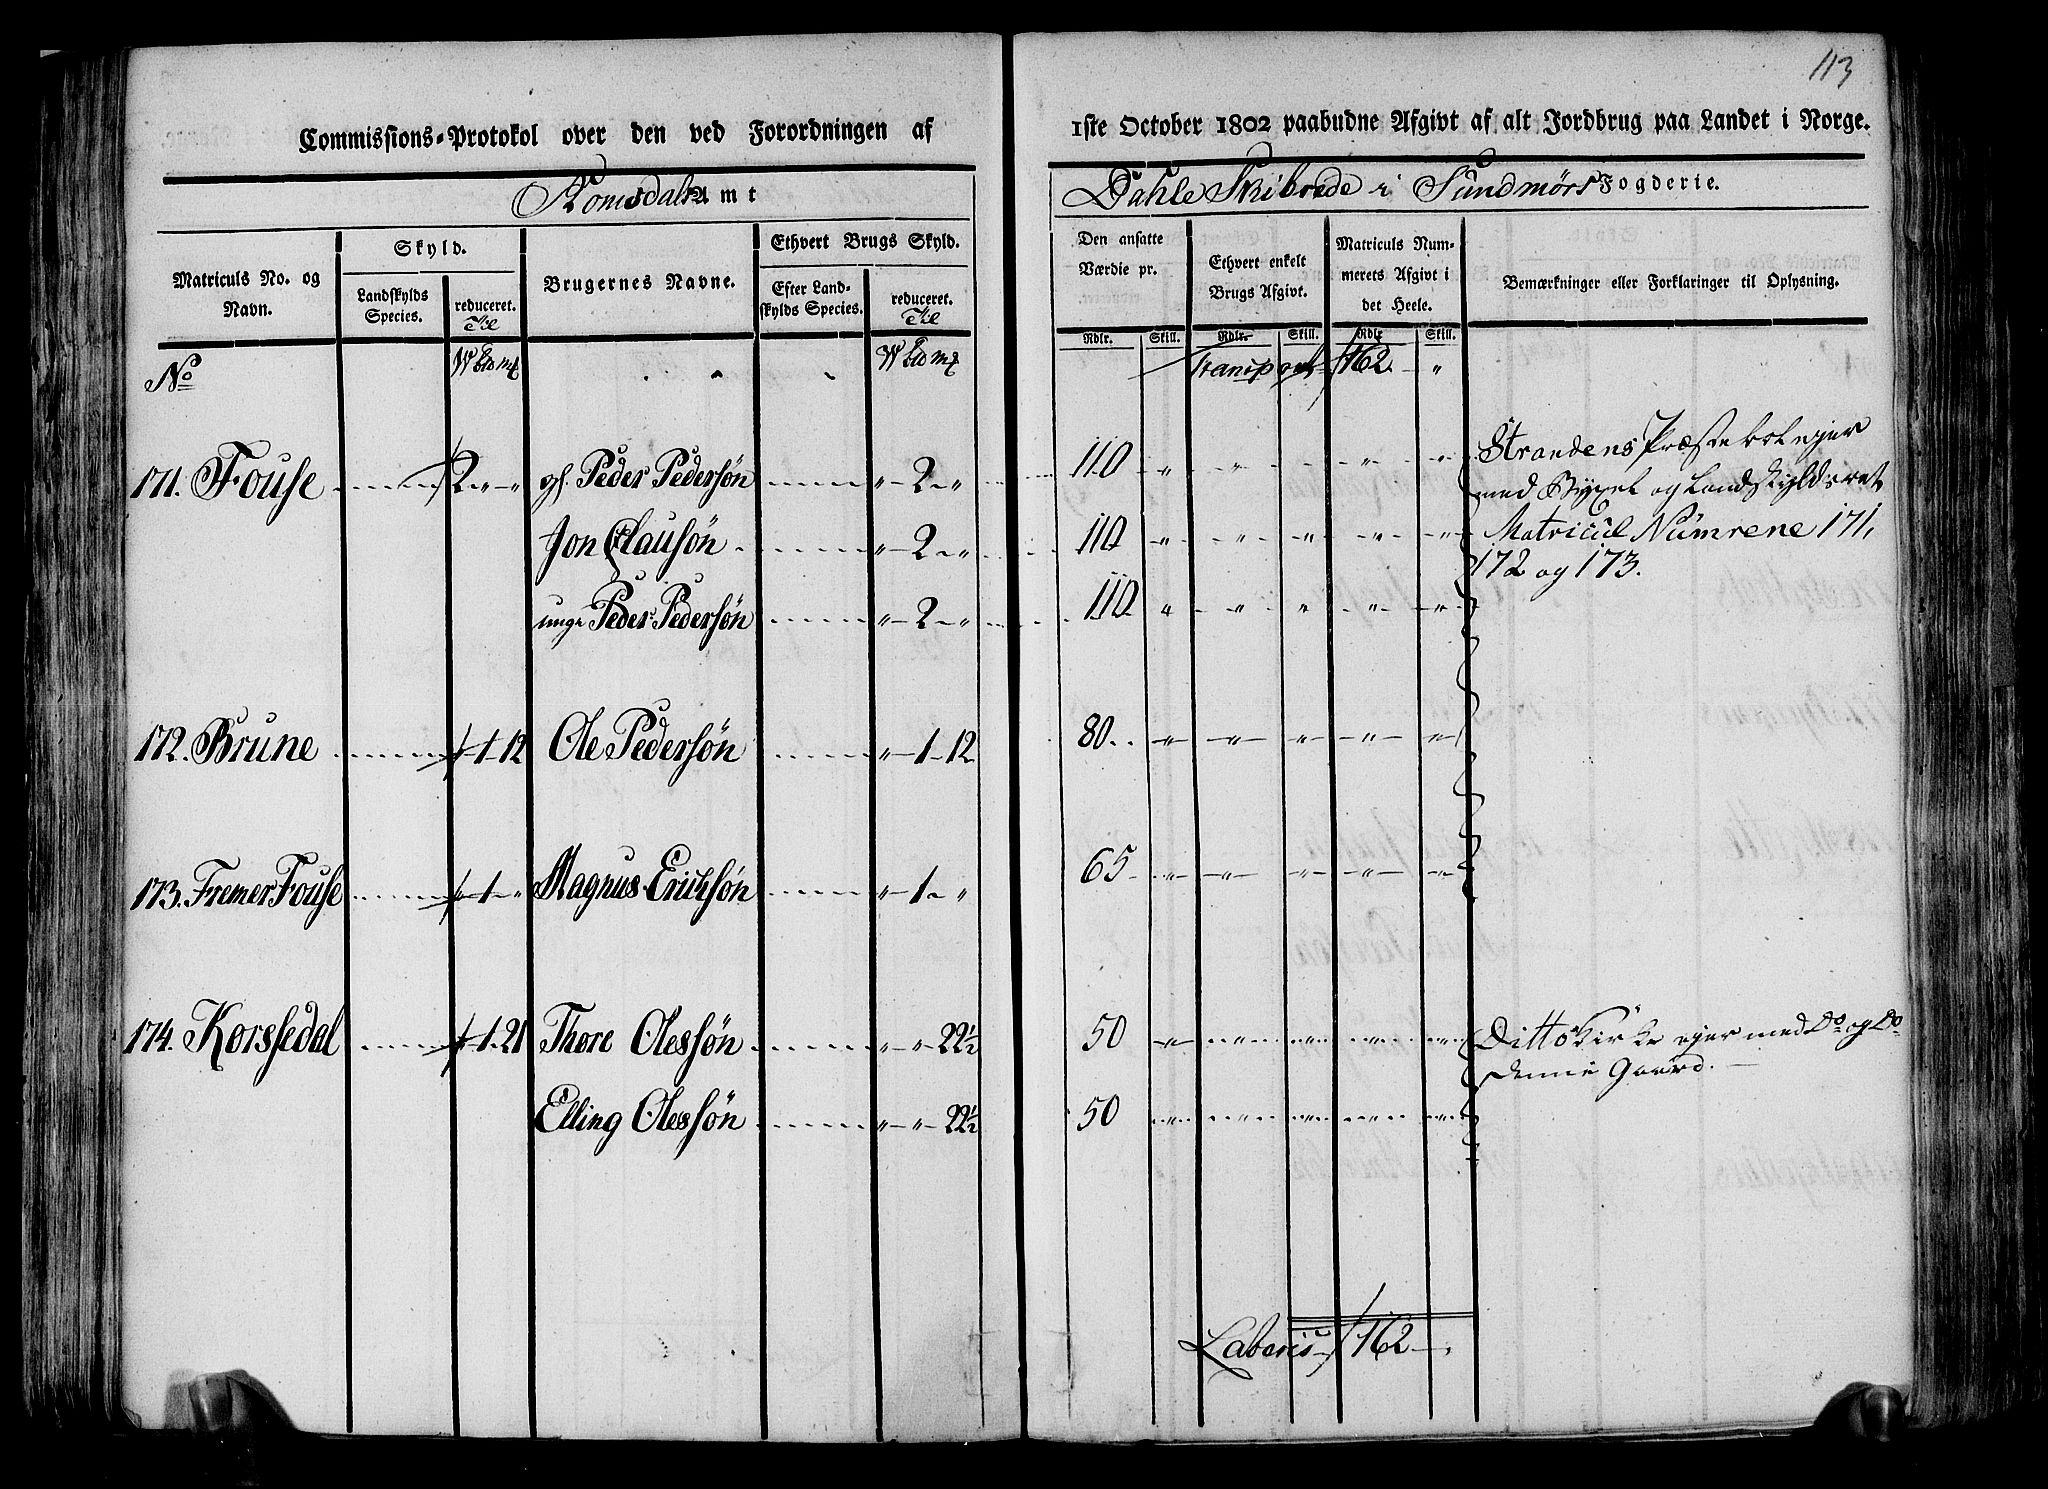 113
Commissions-Protokol over den ved Forordningen af
1ste October 1802 paabudne Afgivt af alt Jordbrug paa Landet i Norge.
Romsdals Amt
Dahle Skibrede i Sundmørs Fogderie.
Matriculs No. og Navn.
Skyld.
Landskylds Species.
reduceret.
Brugernes Navne.
Ethvert Brugs Skyld.
Efter Landskylds Species.
reduceret.
Den ansatte Værdie pr.
Ethvert enkelt Brugs Afgivt.
Matriculs Nummerets Afgivt i det Heele.
Bemærkninger eller Forklaringer til Oplysning.
Rdlr. Skill. Rdlr. Skill. Rdlr. Skill.
No
Transport 162. „
171. Fouse 2 „ „ gl. Peder Pedersøn „ 2 „ 110 „ „ „ „ „ Strandens Præstebol ejer
med Byxel og Landskyldsret
Jon Clausøn „ 2 „ 110 „ „ „ „ „ Matricül Nümrene 171,
172 og 173.
unge Peder Pedersøn „ 2 „ 110 „ „ „ „ „
172. Brune „ 1 12 Ole Pedersøn „ 1 12 80 „ „ „ „ „
173. Fremer Fouse „ 1 „ Magnus Erichsøn „ 1 „ 65 „ „ „ „ „
174. Korssedal „ 1 21 Thore Olessøn „ „ 22½ 50 „ „ „ „ „ Ditto Kirke ejer med Do og Do
denne Gaard.
Elling Olessøn „ „ 22½ 50 „ „ „ „ „
Lateris 162